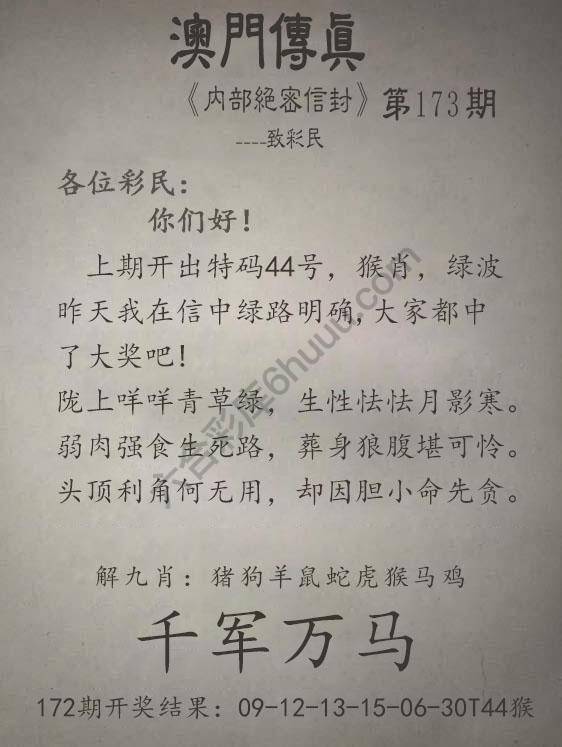 澳門傳眞
《内部絕密信封》第173期
----致彩民
各位彩民：
你们好！
上期开出特码44号，猴肖，绿波
昨天我在信中绿路明确,大家都中
了大奖吧！
陇上咩咩青草绿，生性怯怯月影寒。
弱肉强食生死路，葬身狼腹堪可怜。
头顶利角何无用，却因胆小命先贪。
解九肖：猪狗羊鼠蛇虎猴马鸡
千军万马
172期开奖结果：09-12-13-15-06-30T44猴
六合彩库6huuu.com